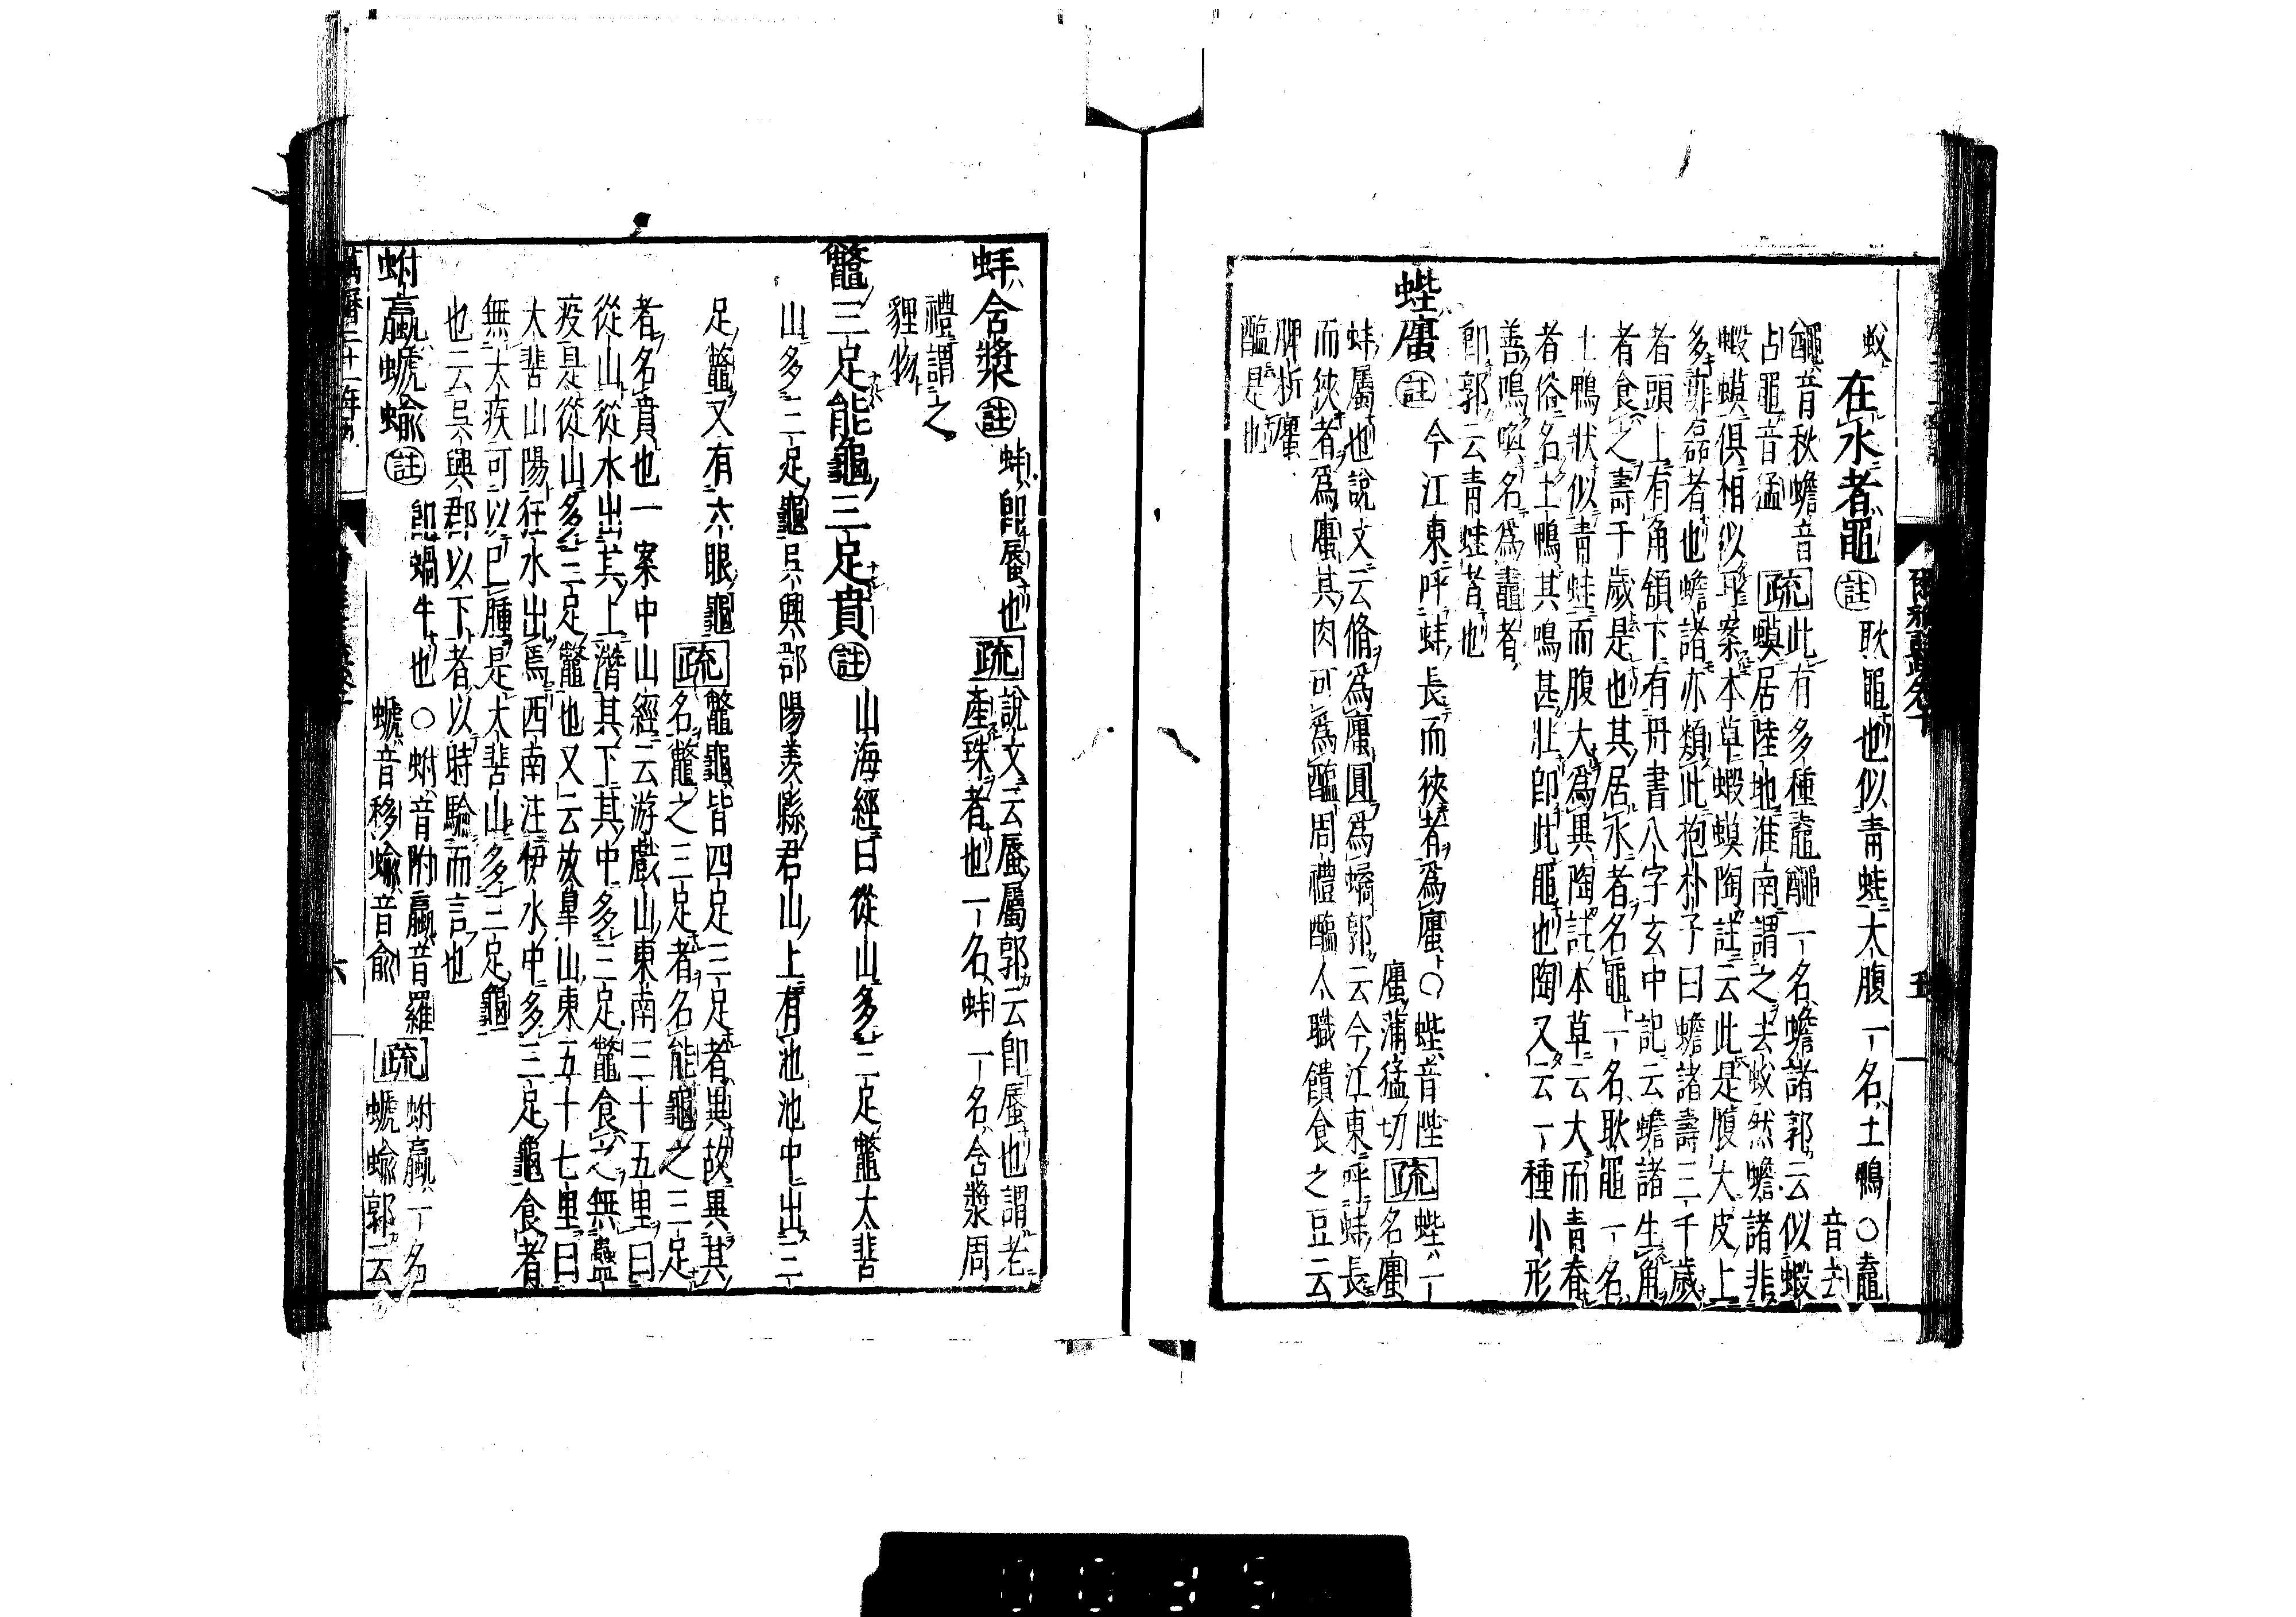 蚁
在水者黽註耿黽也似青蛙大腹一名土鴨○鼀
音去
䵷音秋蟾音
占黽音猛
疏此有多種鼀䵷一名蟾諸郭云似蝦
蟆居陸地淮南謂之去蚁然蟾諸非
蝦蟆俱相似耳案本草蝦蟆陶註云此是腹大皮上
多痱磊者也蟾諸亦類此抱朴子曰蟾諸壽三千歲
者頭上有角頷下有丹書八字玄中記云蟾諸生角
者食之壽千歲是也其居水者名黽一名耿黽一名
土鴨狀似青蛙而腹大為異陶註本草云大而青脊
者俗名土鴨其鳴甚壯即此黽也陶又云一種小形
善鳴喚名為鼃者
即郭云青蛙者也
蜌螷註今江東呼蚌長而狹者為螷○蜌音陛
螷蒲猛切
疏蜌一
名螷
蚌屬也說文云脩為螷圓為蠇郭云今江東呼蚌長
而狹者為螷其肉可為醢周禮醢人職饋食之豆云
脾析螷
醢是也
爾雅註疏卷十
五
蚌含漿註蚌即蜃也疏說文云蜃屬郭云即蜃也謂老
產珠者也一名蚌一名含漿周
禮謂之
貍物
鼈三足能龜三足賁註山海經曰從山多三足鼈大苦
山多三足龜吳興郡陽羨縣君山上有池池中出三
足鼈又有六眼龜
疏鼈龜皆四足三足者異故異其
名鼈之三足者名能龜之三足
者名賁也一案中山經云游戲山東南三十五里曰
從山從水出其上潛其下其中多三足鼈食之無蠱
疫是從山多三足鼈也又云放臯山東五十七里曰
大苦山陽狂水出焉西南注伊水中多三足龜食者
無大疾可以已腫是大苦山多三足龜
也云吳興郡以下者以時驗而言也
蚹蠃螔蝓註即蝸牛也○蚹音附蠃音羅
螔音移蝓音俞
疏蚹蠃一名
螔蝓郭云
六